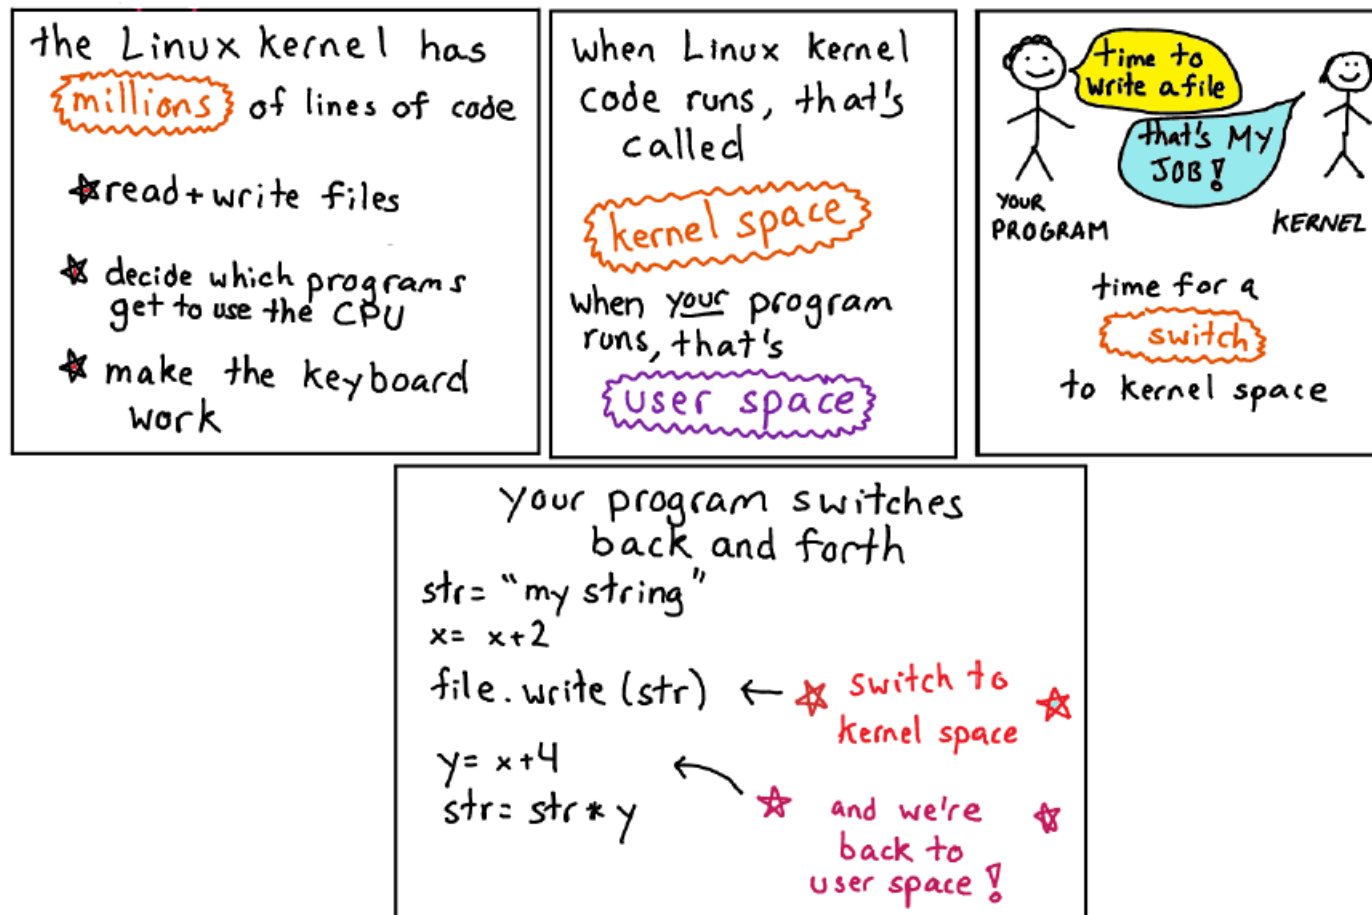 the Linux kernel has
millions of lines of code
read + write files
decide which programs
get to use the CPU
make the keyboard
work
when Linux kernel
code runs, that's
called
kernel space
when your program
runs, that's
user space
time to
write a file
that's MY
JOB!
YOUR
PROGRAM
KERNEL
time for a
switch
to kernel space
your program switches
back and forth
str= "my string"
x= x+2
file.write (str)
switch to
kernel space
y= x+4
str= str * y
and we're
back to
user space!